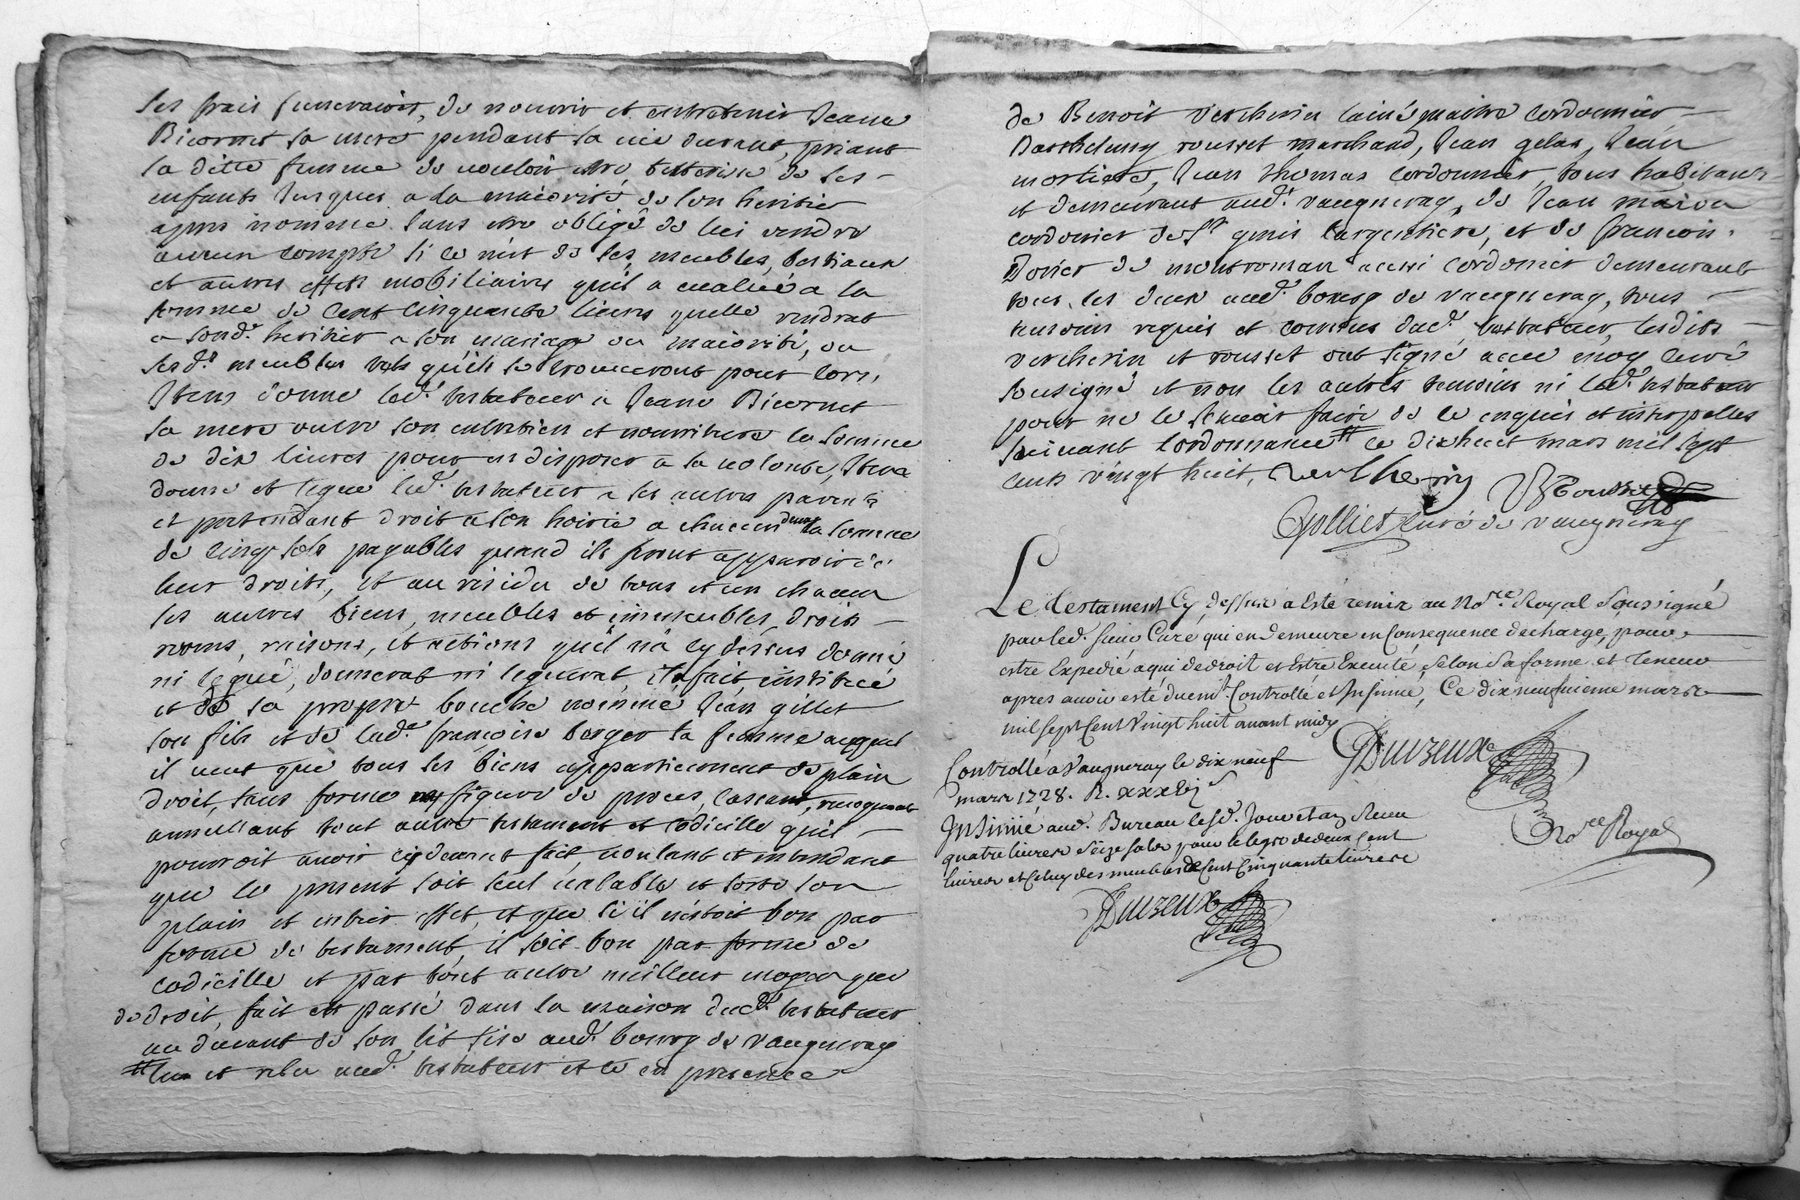 ses frais funeraires, de nourrir et entretenir Jeane
Bicornet sa mere pendant sa vie durant, priant
la ditte femme de vouloir etre tutterise de ses
enfants Jusques a la maiorité de son heritier
apres nommé sans etre obligé de lui rendre
aucun compte si ce n'est de ses meubles, bestiaux
et autres effets mobiliaires qu'il a evalué a la
somme de cent cinquante livres quelle rendrat
a sond.t heritier a son mariage ou maiorité, ou
sesd.ts meubles tels qu'ils se trouveront pour lors,
Item donne led.t testateur a Jeane Bicornet
sa mere outre son entretien et nourriture la somme
de dix livres pour en disposer a sa volonté, Item
donne et legue led.t testateur a ses autres parents
et pretendant droit a son hoirie a chacun deux la somme
de cinq sols payables quand ils feront apparoir de
leur droits, et au residu de tous et un chacun
ses autres biens, meubles et immeubles, droits
noms, raisons, et actions qu'il n'a cy dessus donné
ni legué, donnerat ni leguerat, il a fait, institué
et de sa propre bouche nommé Jean gillet
son fils et de lad.te françoise berger sa femme auquel
il veut que tous ses biens appartiennent de plain
droit, sans forme ny figure de proces, cassant, revoquant
annullant tout autre testament et codicille qu'il
pourroit avoir cy devant fait, voulant et entendant
que le present soit seul valable et sorte son
plain et entier effet, et que si il n'estoit bon par
forme de testament, il soit bon par forme de
codicille et par tout autre meilleur moyen que
de droit, fait et passé dans la maison dud.t testateur
au devant de son lit sise aud.t bourg de vaugneray
# leu et releu aud.t testateur et ce en presence
de Benoit Vercherin lainé maitre cordonnier
Barthelemy rousset marchand, Jean gelas, Jean
mortier, Jean thomas cordonnier, tous habitans
et demeurant aud.t vaugneray, de Jean
cordonier de S.t genis l'argentiere, et de francois
de montroman aussi cordonier demeurant
tous les deux aud.t bourg de vaugneray, tous
temoins requis et connus dud.t testateur, lesdits
vercherin et rousset ont signé avec moy curé
sousigné et non les autres temoins ni led.t testateur
pour ne le scavoir faire de ce enquis et interpellés
suivant l'ordonnance # ce dixhuit mars mil sept
cents vingt huit, Vercherin Rousset
Golliet curé de vaugneray
Le testament Cy dessus a Esté remis au No.re Royal Soussigné
par led. sieur Curé qui en demeure en Consequence decharge, pour
estre Expedié a qui de droit et Estre Executé, Selon Sa forme et teneur
apres avoir esté duem.t Controllé et Insinué, Ce dix neufuieme mars
mil sept Cent Vingt huit avant midy
Duizeux
No.re Royal
Controllé a Vaugneray le dix neuf
mars 1728. R.
Insinué aud. Bureau lesd. Jour et an Receu
quatre livres Seize sols pour le legs de deux Cent
livres et Celuy des meubles de Cent Cinquante livres
Duizeux